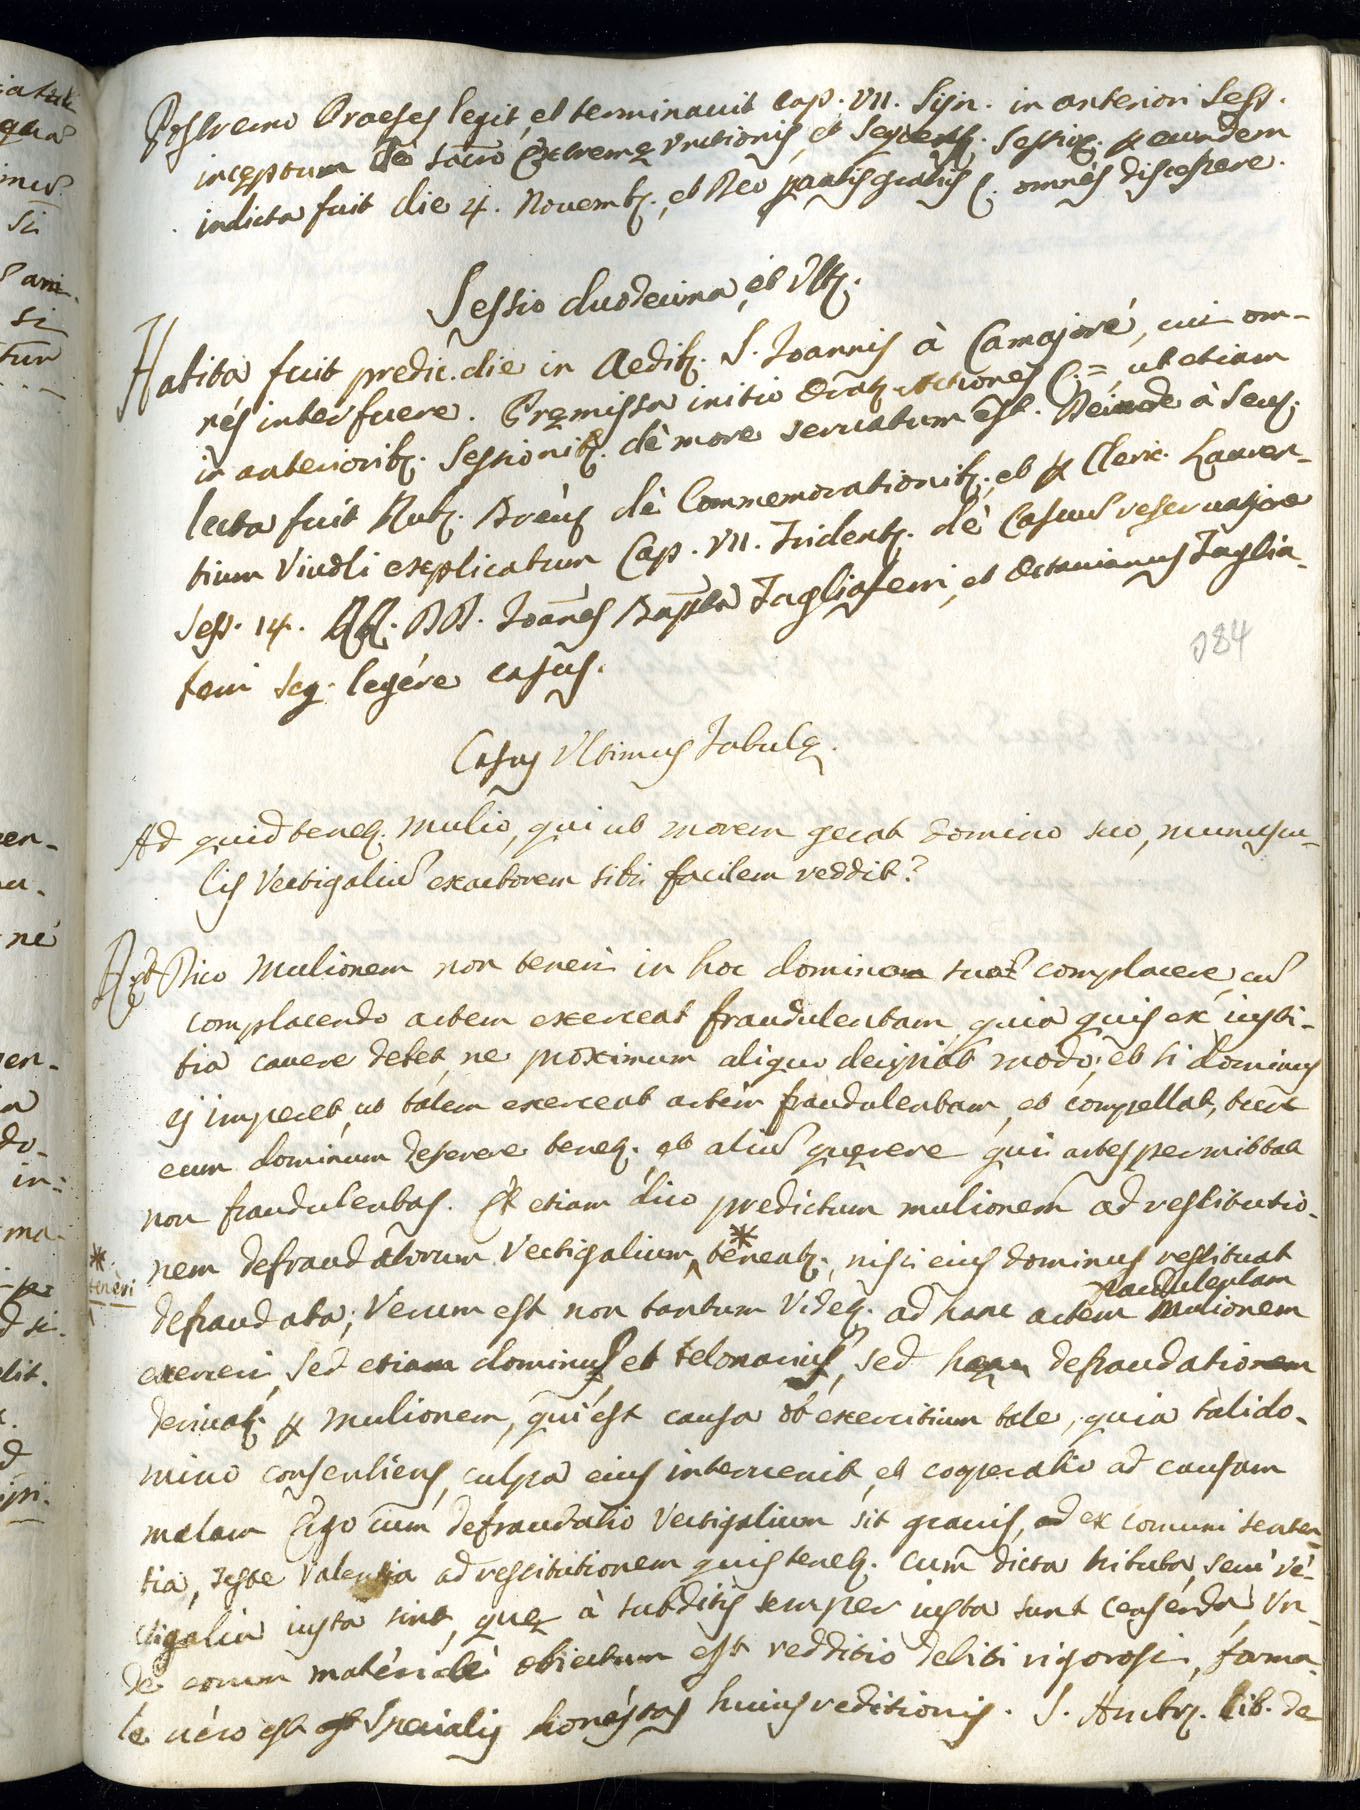 Postremo Praeses legit, et terminavit Cap. VII. Syn. in anteriori Sess.
inceptum de sacro Extremę Unctionis, et Sequentq. Sessio pro eundem
indicta fuit die 4. Novembq., et Deo gratis omnes discessere.
Sessio duodecima, et Ultq.
Habita fuit predic. die in Aedibq. S. Joannis à Camajore, cui om-
nes interfuere. Premissa initio Oratq. Actiones &. = ut etiam
in anterioribq. Sessionibq. de more servatum est. Deinde à Secq.
lecta fuit Rubq. Breuq de Commemorationibq., et per Cleric. Lauren-
tium Viudli explicatum Cap. VII. Tridentq. de Casuum reservatione
Sess. 14. RR. DD. Joanes Bapta Tagliaferri, et Octavianus Taglia-
ferri seq. legere casus.
084
Casus Ultimus Tabulę.
Ad quid tenetq. mulio, qui ut morem gerat domino suo, munuscu-
lis Vectigaliu exactorem sibi facilem reddit?
Rdeo Dico Mulionem non teneri in hoc domino suo complacere, cu
complacendo artem exerceat fraudulentam, quia quis ex iusti-
tia cavere debet, ne proximum aliquo decipiat modo; et si dominus
ej imperet, ut talem exerceat artem fraudulentam, et compellat, tunc
eum dominum deserere tenetq. et aliu quęrere qui artes permittat
non fraudulentas. Et etiam dico predictum mulionem ad restitutio-
nem defraudatorum Vectigalium * teneatq., nisi eius dominus restituat
* teneri
defraudata; Verum est non tantum Videtq. ad hanc artem fraudulentam Mulionem
exerceri, sed etiam dominus et telonarius, sed haec defraudationem
derivatq. per mulionem, qui est causa ob exercitium tale, quia tali do-
mino consentiens, culpa eius intervenit, et cooperatio ad causam
malam Ergo cum defraudatio Vectigalium sit gravis, ad ex comuni senten-
tia, teste Valentia ad restitutionem quis tenetq. cum dicta tributa, seu ve-
ctigalia iusta sint, quę à subditis semper iusta sunt censenda, Un-
de eorum materiale obiectum est redditio debiti rigorosi, forma-
le vero est specialis honestas huius reditionis. S. Ambrq. lib. de